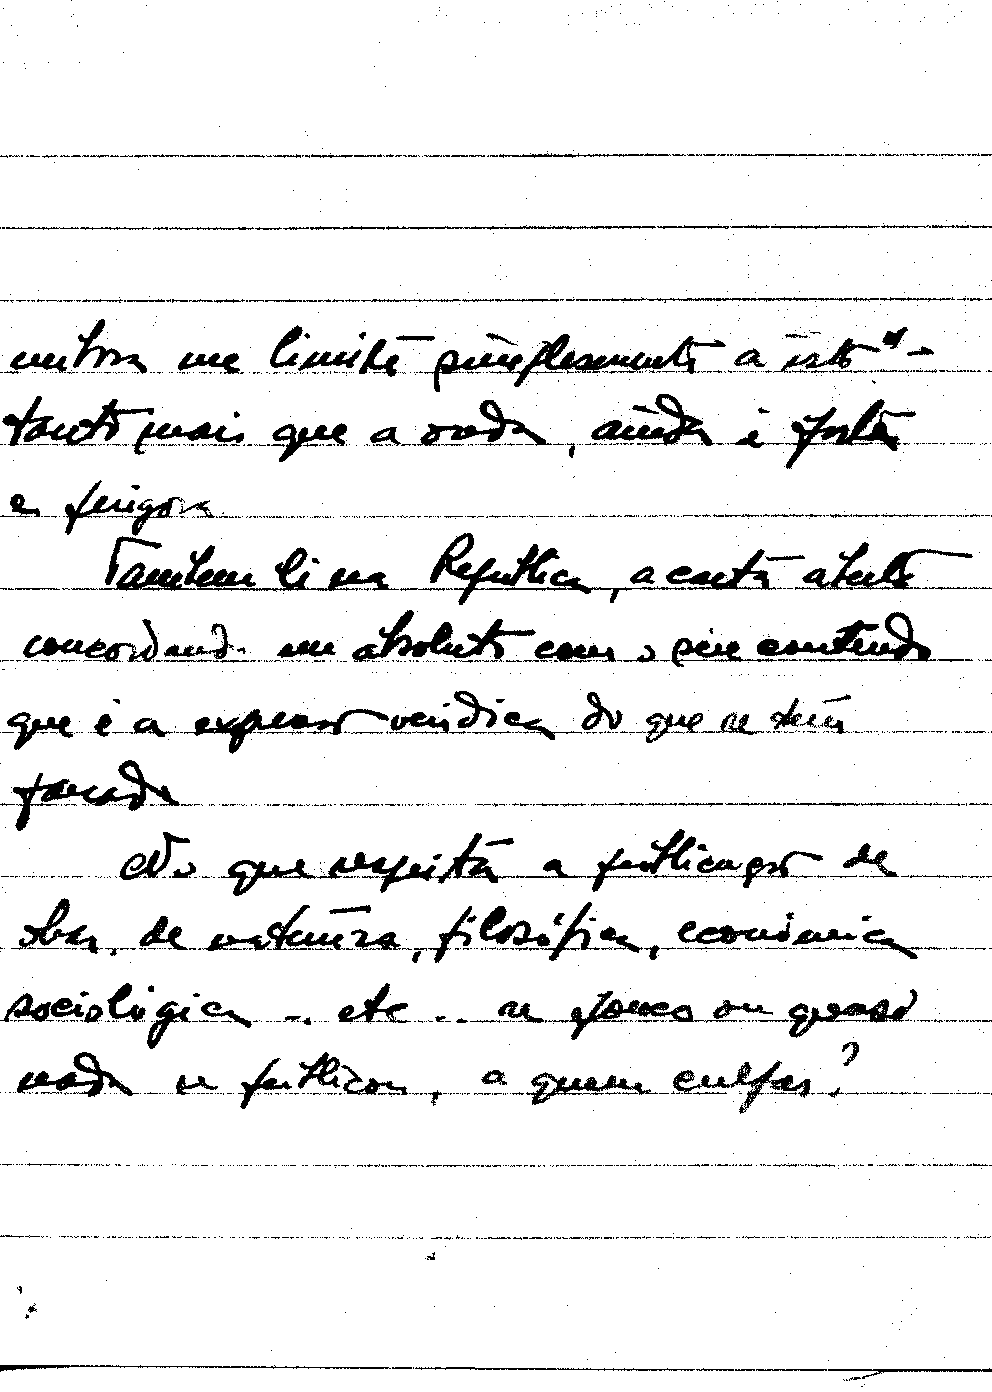 embora me limite simplesmente a isto" -
tanto mais que a onda, ainda é forte
e perigosa
Tambem li na República, a carta aberta
concordando em absoluto com o seu conteudo
que é a expressão veridica do que se tem
passado
No que respeita a publicação de
obras, de natureza, filosófica, económica
sociológica ... etc ... se pouco ou quase
nada se publicou, a quem culpar?